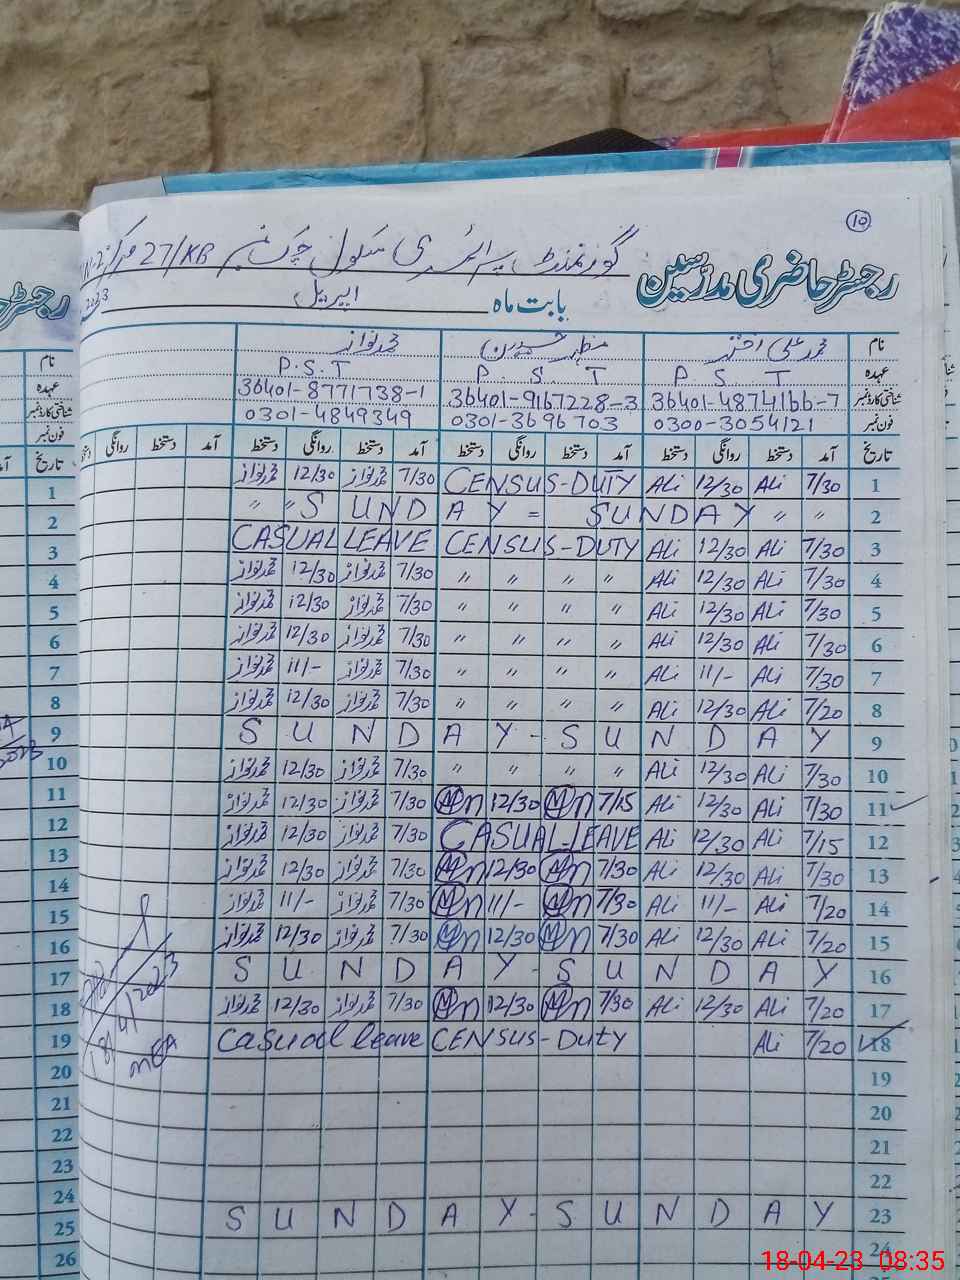 10
گورنمنٹ پرائمری سکول چک نمبر 27/KB مرکز
رجسٹر حاضری مدرسین
بابت ماہ اپریل
نام محمد علی اختر منظر حسین محمد نواز
عہدہ P S T P. S. T P.S.T
شناختی کارڈ نمبر 36401-4874166-7 36401-9167228-3 36401-8771738-1
فون نمبر 0300-3054121 0301-3696703 0301-4849349
تاریخ آمد دستخط روانگی دستخط آمد دستخط روانگی دستخط آمد دستخط روانگی دستخط آمد دستخط روانگی
1 7/30 Ali 12/30 Ali CENSUS-DUTY 7/30 محمد نواز 12/30 محمد نواز
2 " " S UND A Y = SUNDAY " "
3 7/30 Ali 12/30 Ali CENSUS-DUTY CASUAL LEAVE
4 7/30 Ali 12/30 Ali " " " " 7/30 محمد نواز 12/30 محمد نواز
5 7/30 Ali 12/30 Ali " " " " 7/30 محمد نواز 12/30 محمد نواز
6 7/30 Ali 12/30 Ali " " " " 7/30 محمد نواز 12/30 محمد نواز
7 7/30 Ali 11/- Ali " " " " 7/30 محمد نواز 11/- محمد نواز
8 7/20 Ali 12/30 Ali " " " " 7/30 محمد نواز 12/30 محمد نواز
9 S U N D A Y - S U N D A Y
10 7/30 Ali 12/30 Ali " " " " 7/30 محمد نواز 12/30 محمد نواز
11 7/30 Ali 12/30 Ali 7/15 12/30 7/30 محمد نواز 12/30 محمد نواز
12 7/15 Ali 12/30 Ali CASUAL-LEAVE 7/30 محمد نواز 12/30 محمد نواز
13 7/30 Ali 12/30 Ali 7/30 12/30 7/30 محمد نواز 12/30 محمد نواز
14 7/20 Ali 11/- Ali 7/30 11/- 7/30 محمد نواز 11/- محمد نواز
15 7/20 Ali 12/30 Ali 7/30 12/30 7/30 محمد نواز 12/30 محمد نواز
16 S U N D A Y - S U N D A Y
17 7/20 Ali 12/30 Ali 7/30 12/30 7/30 محمد نواز 12/30 محمد نواز
18 7/20 Ali CENSUS-Duty Casual leave
19
20
21
22
23 S U N D A Y - S U N D A Y
24
18/4/2023
MEA
1
2
3
4
5
6
7
8
9
10
11
12
13
14
15
16
17
18
19
20
21
22
23
24
25
26
18-04-23 08:35